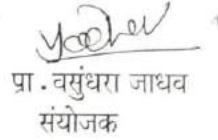 प्रा. वसुंधरा जाधव
संयोजक